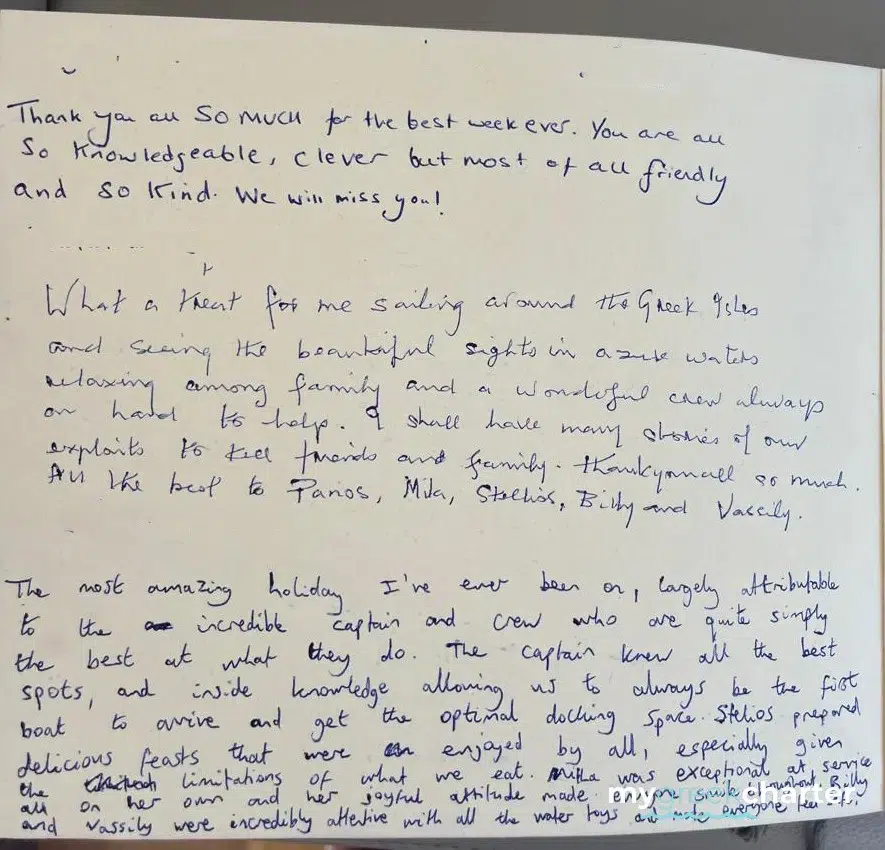 Thank you all SO MUCH for the best week ever. You are all
So Knowledgeable, clever but most of all friendly
and so Kind. We will miss you!
What a treat for me sailing around the Greek Isles
and seeing the beautiful sights in azure waters
relaxing among family and a wonderful crew always
on hand to help. I shall have many stories of our
exploits to tell friends and family. Thankyou all so much.
All the best to Panos, Mila, Stellios, Billy and Vassily.
The most amazing holiday I've ever been on, largely attributable
to the incredible captain and crew who are quite simply
the best at what they do. The captain knew all the best
spots, and inside knowledge allowing us to always be the first
boat to arrive and get the optimal docking space. Stelios prepared
delicious feasts that were enjoyed by all, especially given
the limitations of what we eat. Milla was exceptional at service
all on her own and her joyful attitude made everyone smile throughout. Billy
and Vassily were incredibly attentive with all the water toys and made everyone feel
my greek charter